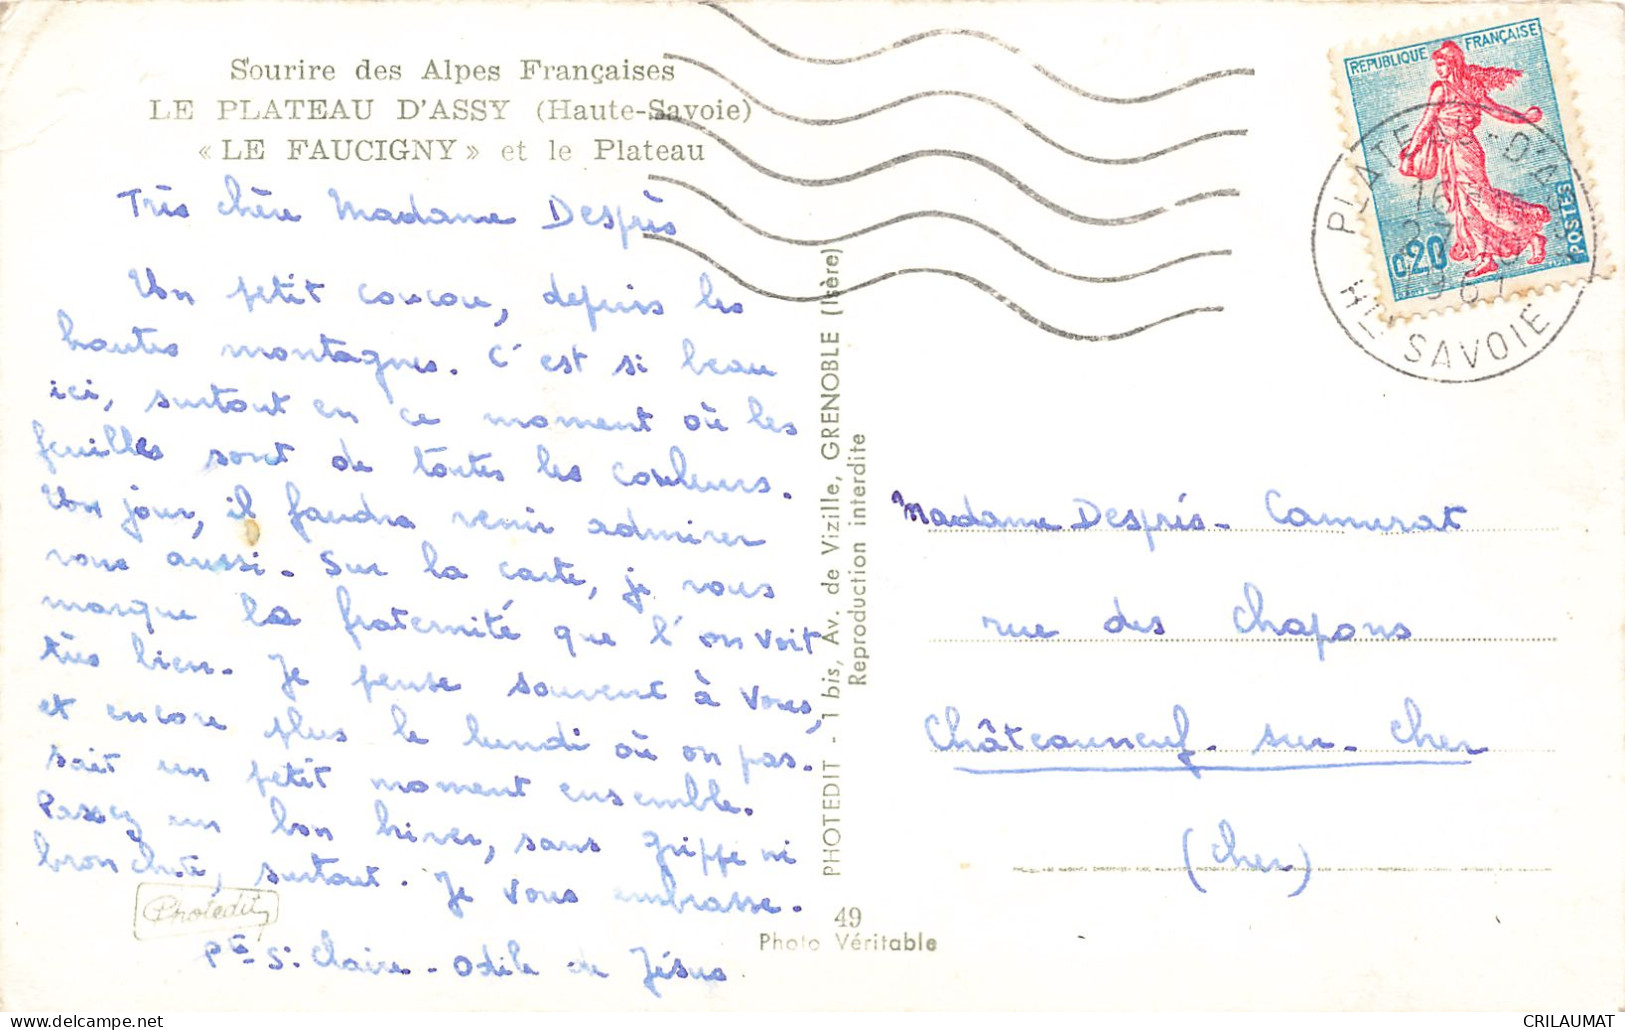 Sourire des Alpes Françaises
LE PLATEAU D'ASSY (Haute-Savoie)
« LE FAUCIGNY » et le Plateau
Très chère Madame Desprès
Un petit coucou, depuis les
hautes montagnes. C'est si beau
ici, surtout en ce moment où les
feuilles sont de toutes les couleurs.
Un jour, il faudra venir admirer
vous aussi. Sur la carte, je vous
marque la fraternité que l'on voit
très bien. Je pense souvent à vous,
et encore plus le lundi où on pas.
sait un petit moment ensemble.
Passez un bon hiver, sans grippe ni
bronchite, surtout. Je vous embrasse.
Pte Sr Claire - Odile de Jésus
Photedit
PHOTEDIT - 1 bis, Av. de Vizille, GRENOBLE (Isère)
Reproduction interdite
49
Photo Véritable
REPUBLIQUE FRANÇAISE
0,20
POSTES
PLATEAU-D'ASSY
16 H
27-10
1961
HTE SAVOIE
Madame Desprès - Camurat
rue des Chapons
Châteauneuf-sur-Cher
(Cher)
CRILAUMAT